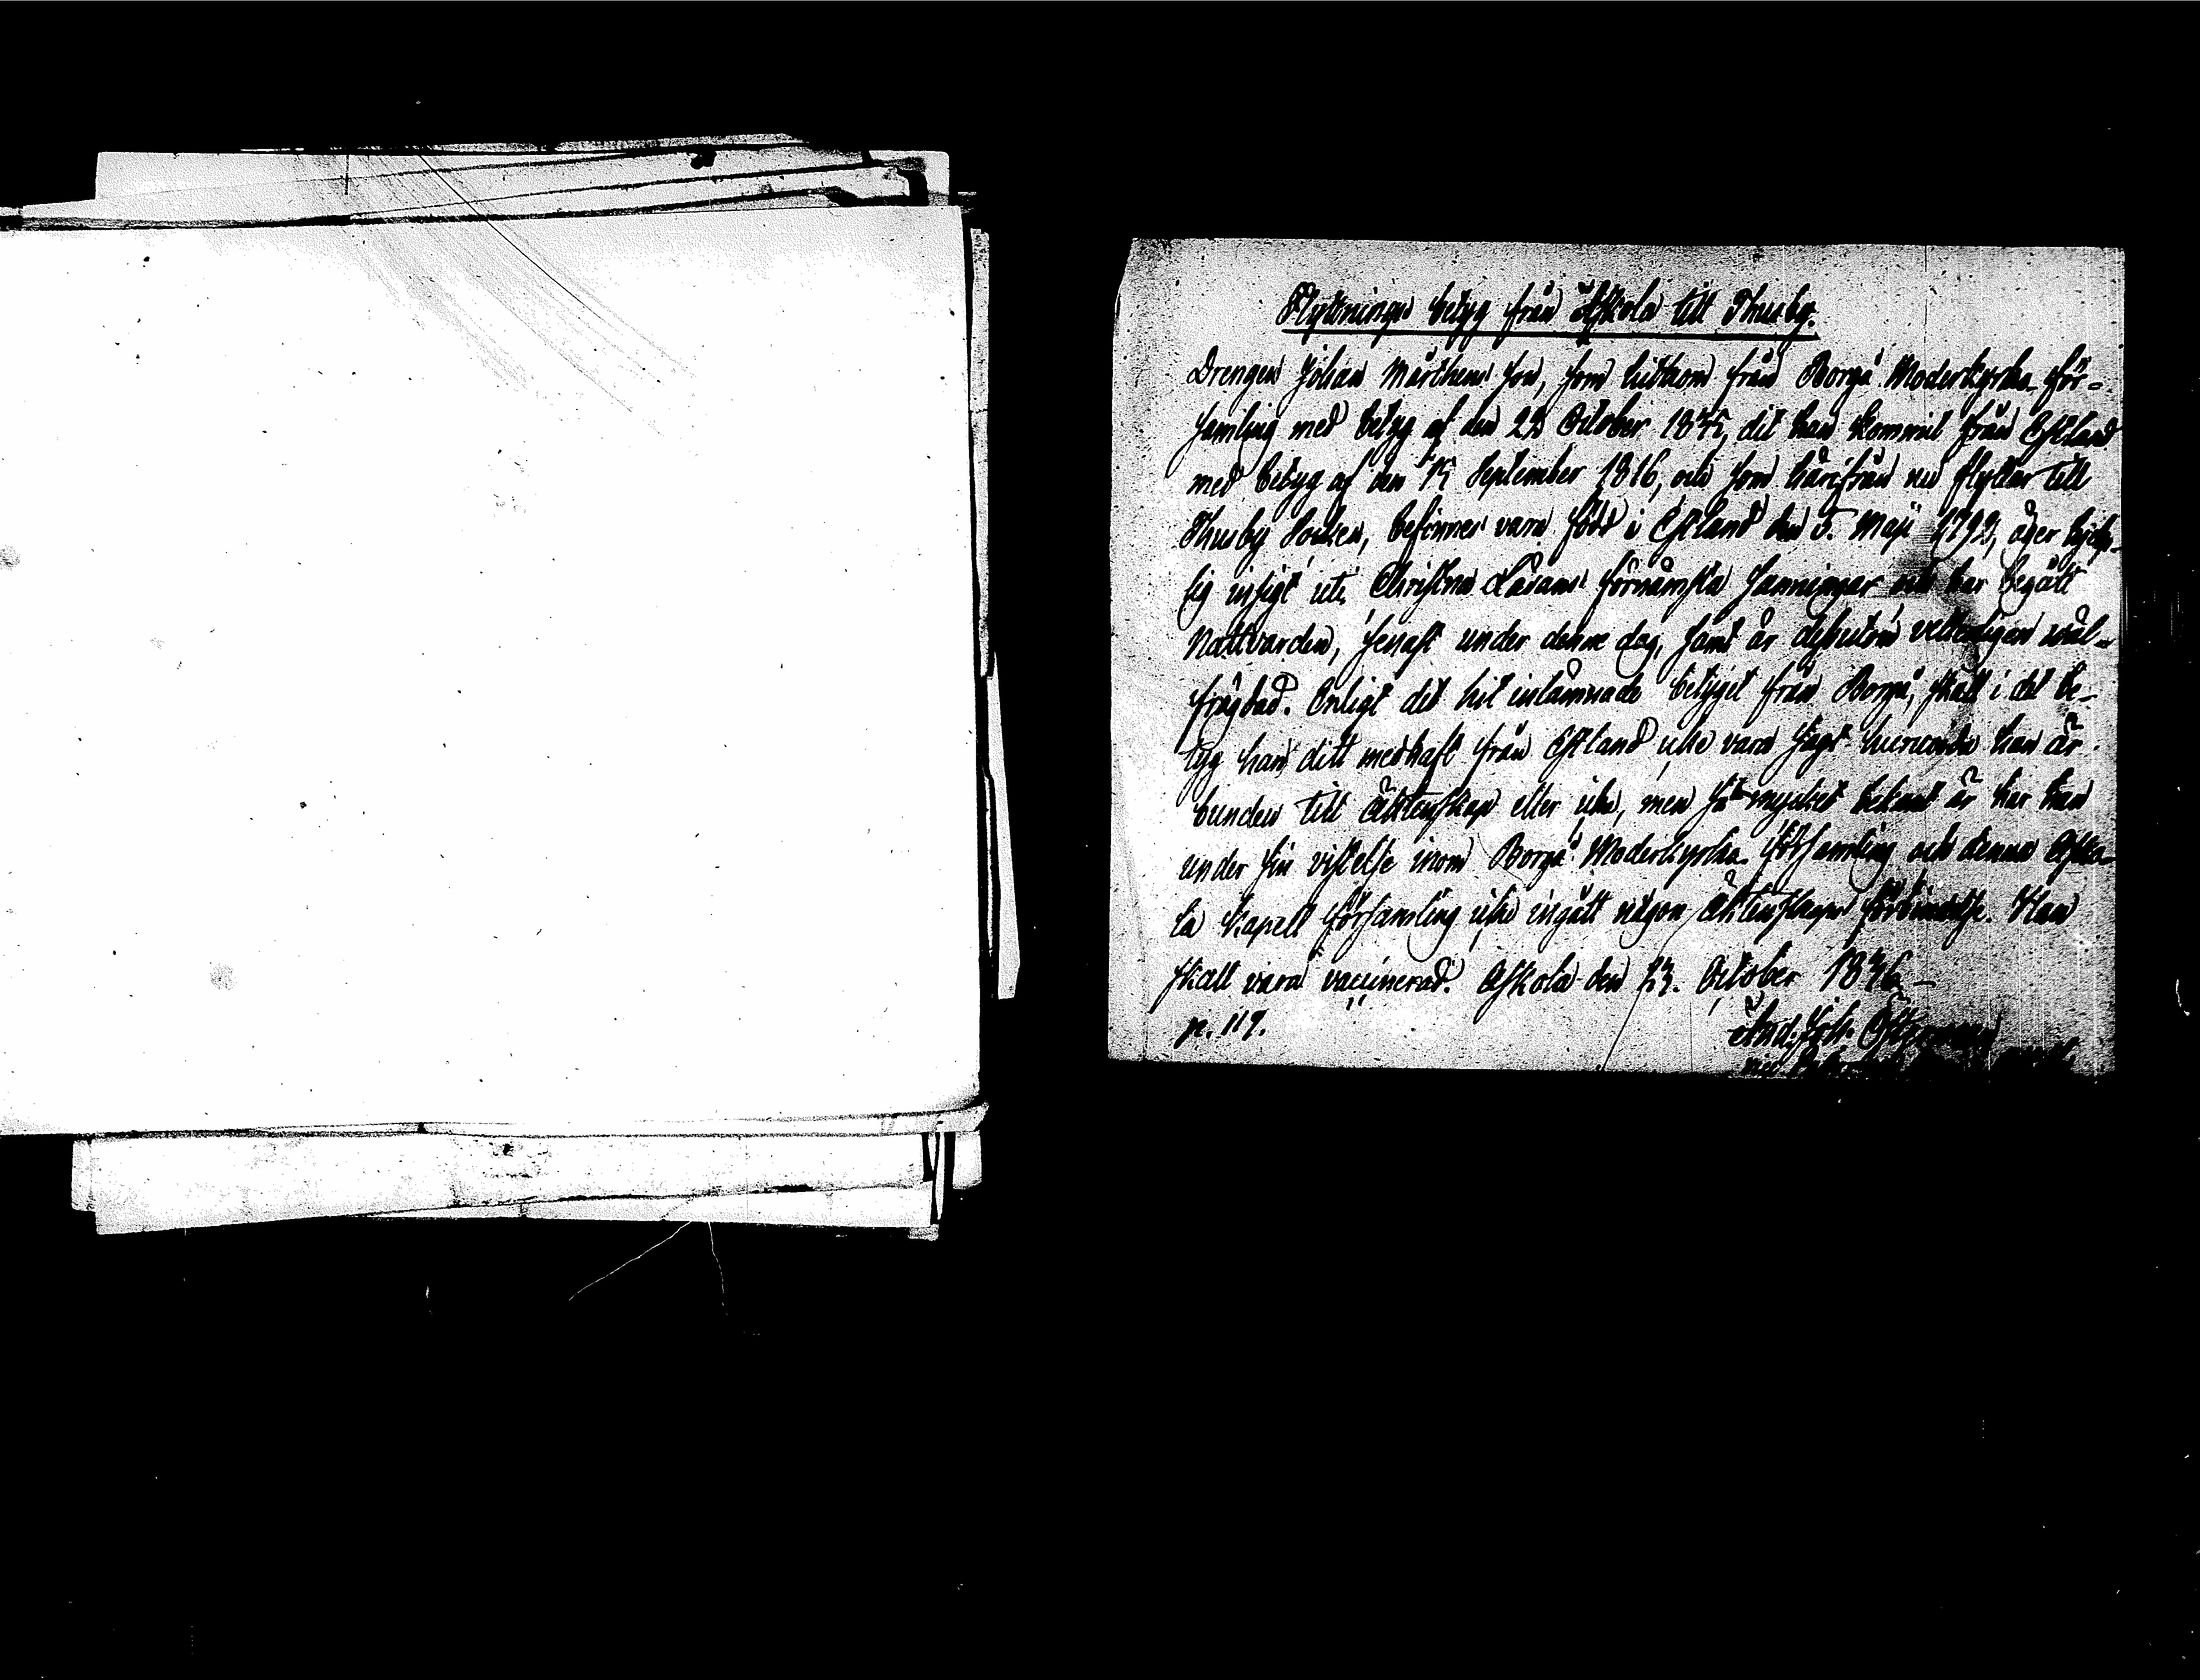 Flyttnings betyg från Askola till Thusby.
Drengen Johan Mårthens son, som hitkom från Borgå Moderkyrko För-
samling med betyg af den 29 October 1835, dit han kommit från Estland
med betyg af den 15 September 1816, och som härifrån nu flyttar till
Thusby Socken, befinnes vara född i Estland den 5. Maji 1792, äger hjelp-
lig insigt uti Christna Lärans förnämsta Sanningar och har begått
Nattvarden, senast under denne dag, samt är dessutom veterligen wäl-
frägdad. Enligt det hit inlämnade betyget från Borgå, skall i det be-
tyg han ditt medhaft från Estland icke vara sagt huruvida han är
bunden till äktenskap eller icke, men så mycket bekant är har han
under sin vistelse inom Borgå Moderkyrko Församling och denna Asko-
la Kapell Församling icke ingått någon äktenskaps förbindelse. Han
skall vara vaccinerad. Askola den 23. October 1836
p. 119.
And. Joh.